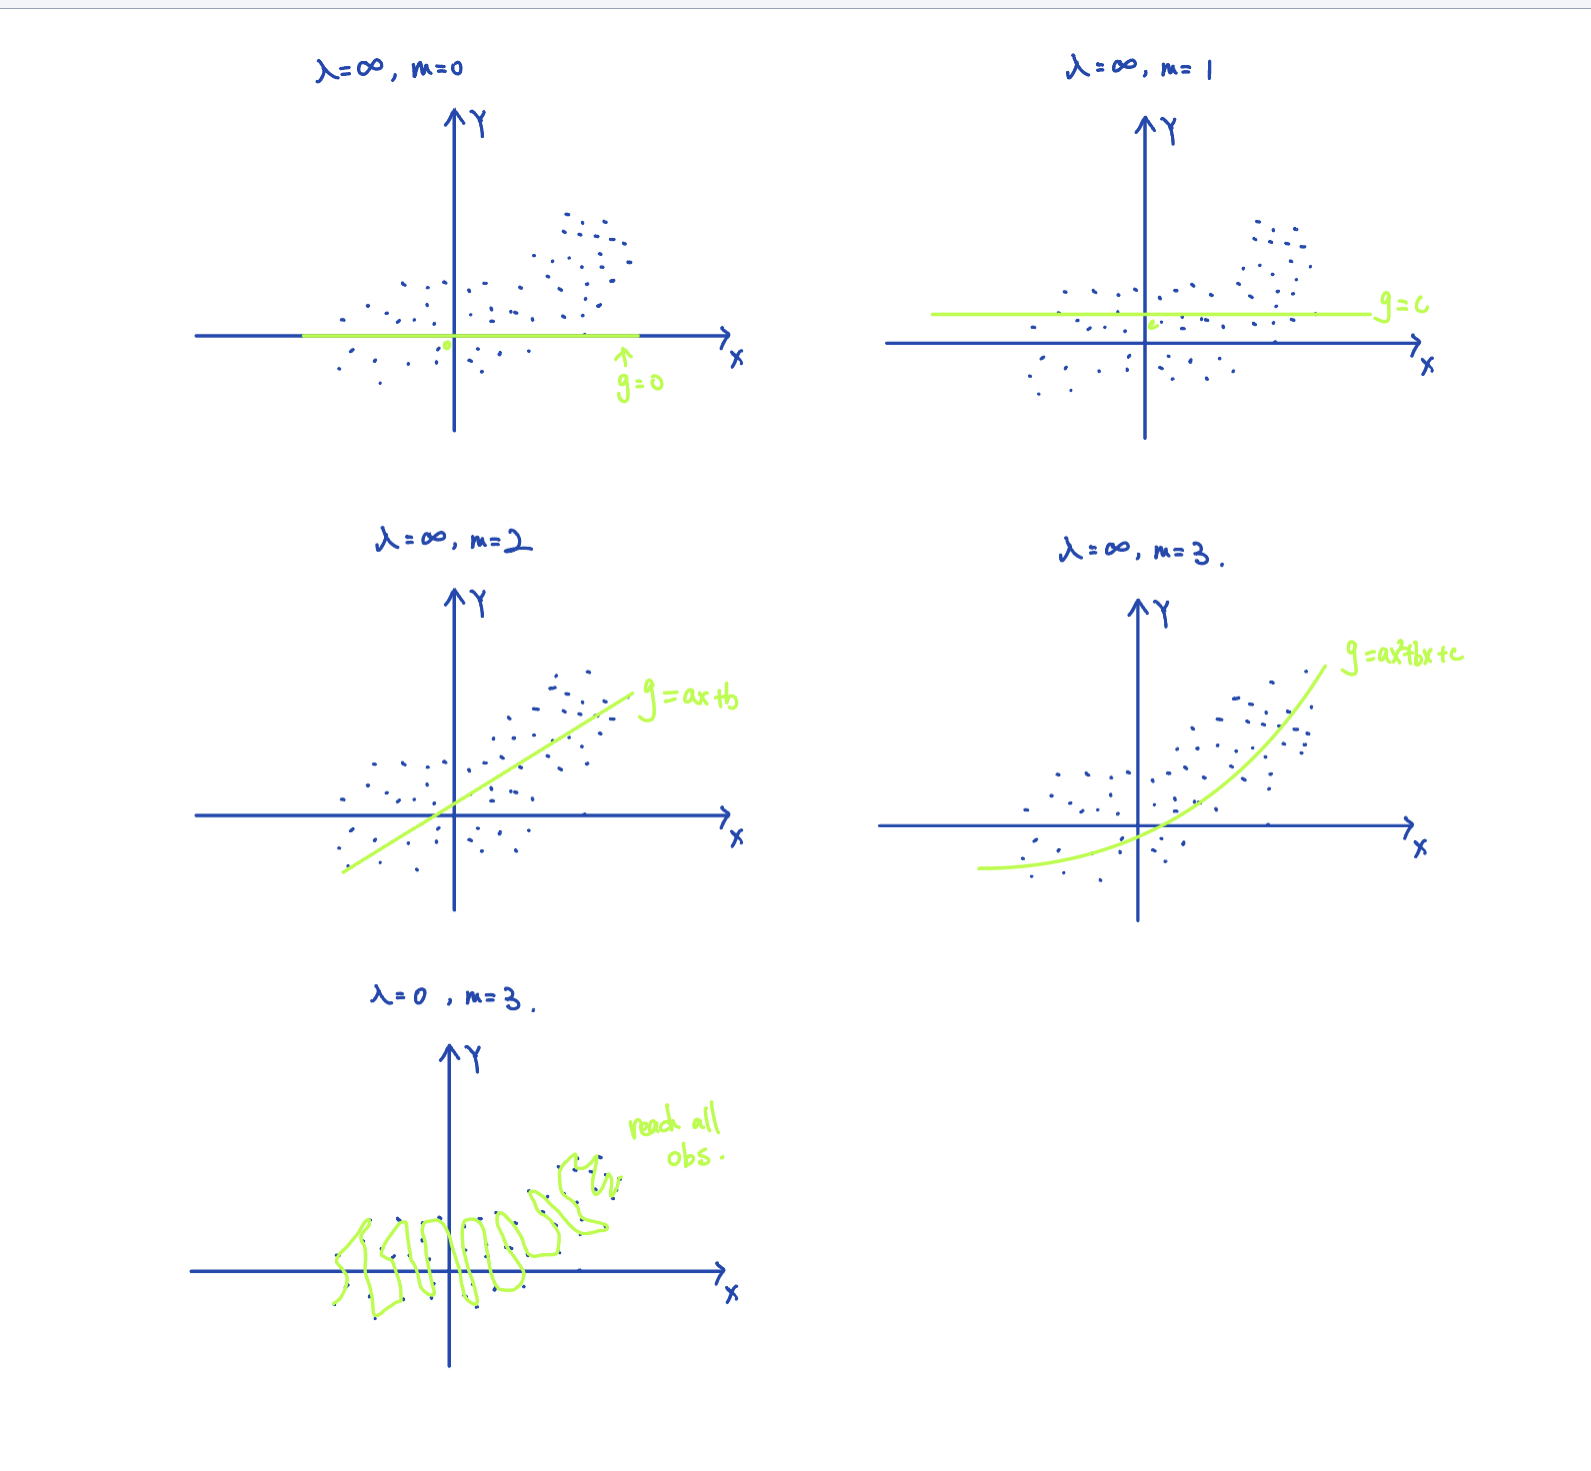 λ=∞, m=0
Y
X
0
g=0
λ=∞, m=1
Y
X
c
g=c
λ=∞, m=2
Y
X
g=ax+b
λ=∞, m=3.
Y
X
g=ax²+bx+c
λ=0, m=3.
Y
X
reach all
obs.